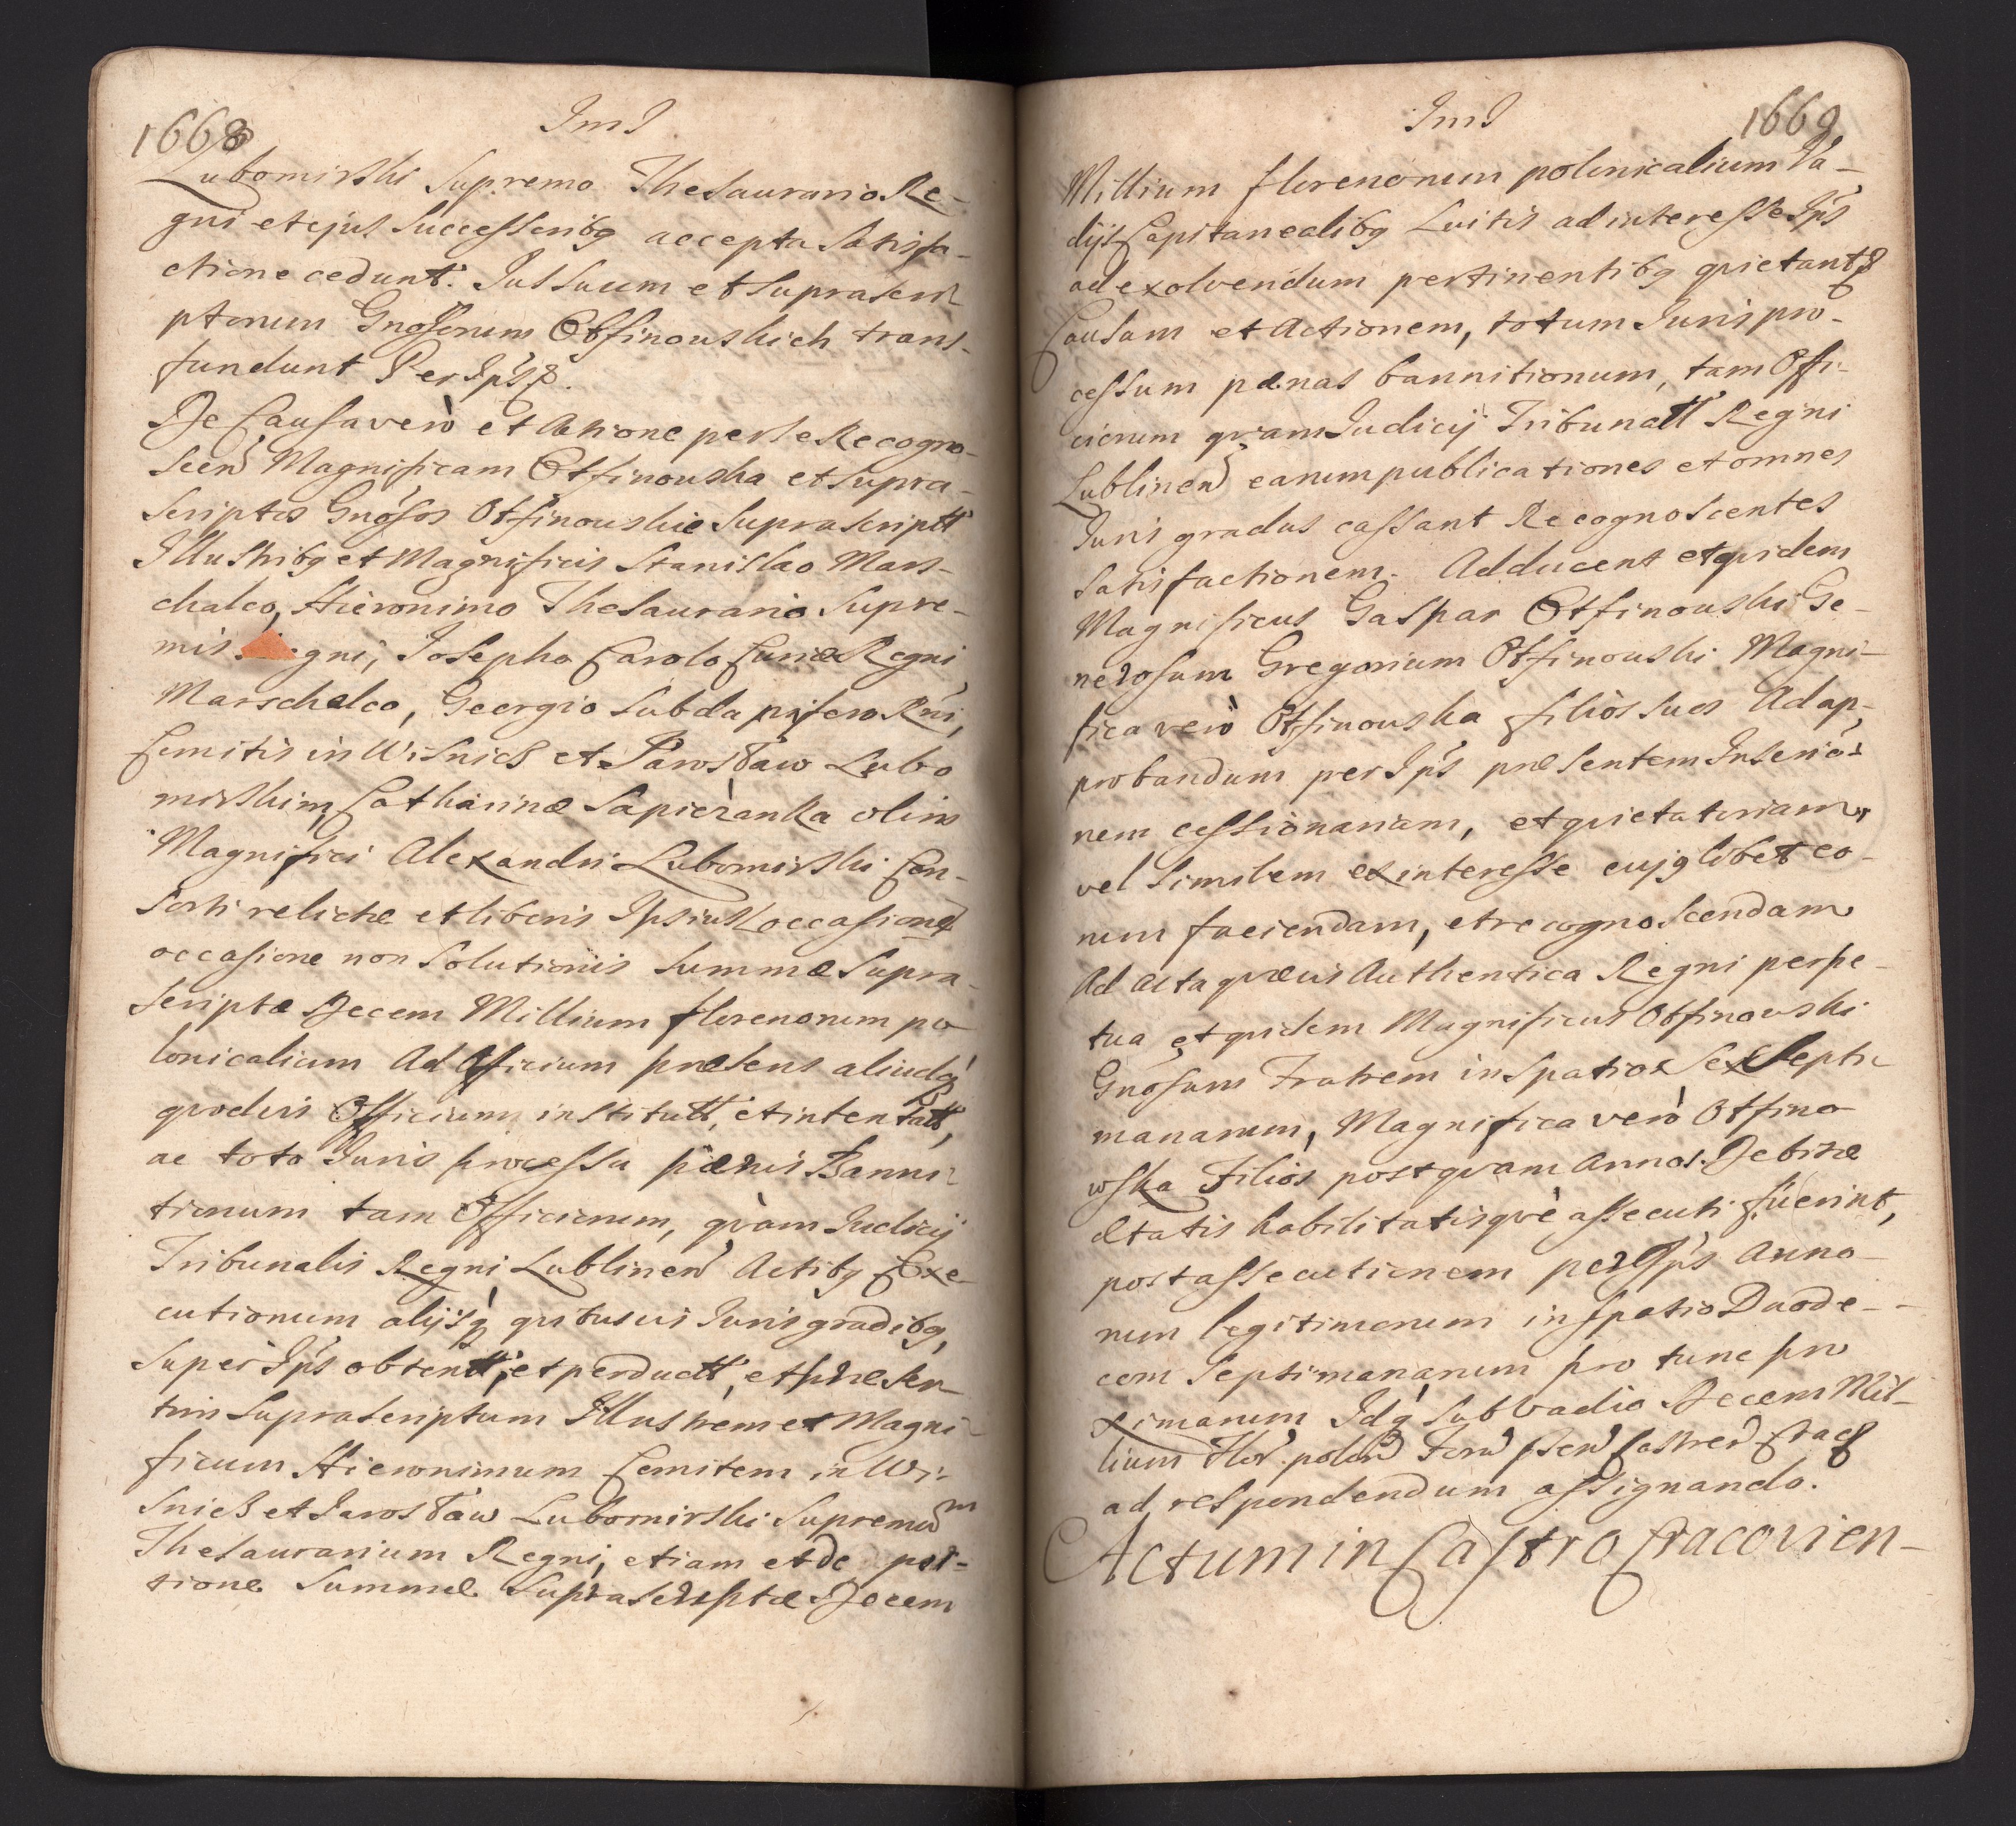 1668
ImI
Lubomirski Supremo Thesaurario Re-
gni et ejus Successoribq accepta Satisfa-
ctione cedunt. Jus Suum et Suprascri-
ptorum Gnosorum Otfinowskich trans-
fundunt Per Ips
De Causa verò et Actione per se Recogno-
scen Magnificam Otfinowska et Supra-
scriptos Gnosos Otfinowskie Suprascriptt
Illustribq et Magnificis Stanislao Mars-
chalco, Hieronimo Thesaurario Supre-
mis egni, Josepho Carolo Curiæ Regni
Marschalco, Georgio Subdapifero Rni,
Comitis in Wisnicz et Jarosław Lubo
mirskim, Catharinæ Sapiezanka olim
Magnifici Alexandri Lubomirski Con-
sorti relictæ et liberis Ipsius occasione
occasione non Solutionis Summæ Supra-
scriptæ Decem Millium florenorum po
lonicalium Ad Officium præsens aliudq
quodvis Officium institutt, et intentatt,
ac toto Juris processu pænis Banni-
tionum tam Officiorum, qvàm Judicij
Tribunalis Regni Lublinen Actibq Exe-
cutionum alijsq quibusvis Juris gradibq,
super Ips obtentt, et perductt, et præser-
tim Suprascriptum Illustrem et Magni-
ficum Hieronimum Comitem in Wi-
snicz et Jarosław Lubomirski Supremum
Thesaurarium Regni, etiam et de por-
tione Summæ Suprascriptæ Decem
ImI
1669
Millium florenorum polonicalium Va-
dijs Capitanealibq Luitis ad interesse Ips
ad exolvendum pertinentibq qvietant
Causam et Actionem, totum Juris pro-
cessum pænas bannitionum, tam Offi-
ciorum qvam Judicij Tribunall Regni
Lublinen earum publicationes et omnes
Juris gradus cassant Recognoscentes
satisfactionem. Adducent et qvidem
Magnificus Gaspar Otfinowski Ge-
nerosum Gregorium Otfinowski Magni-
fica verò Otfinowska filios suos Ad ap-
probandum per Ips præsentem Inscriptio-
nem cessionariam, et qvietatoriam,
vel Similem ex interesse cujqlibet eo-
rum faciendam, et recognoscendam
Ad Acta qvævis Authentica Regni perpe-
tua et qvidem Magnificus Otfinowski
Gnosum Fratrem in Spatio Sex Septi-
manarum, Magnifica verò Otfino-
wska Filios postqvam Annos Debitæ
ætatis habilitatisqvè assecuti fuerint,
post assecutionem per Ips Anno-
rum legitimorum in spatio Duode-
cem Septimanarum pro tunc pro
ximarum Idq Sub vadio Decem Mil-
lium Flor. polon Foro psen Castren Crac
ad respondendum assignando.
Actum in Castro Cracovien-